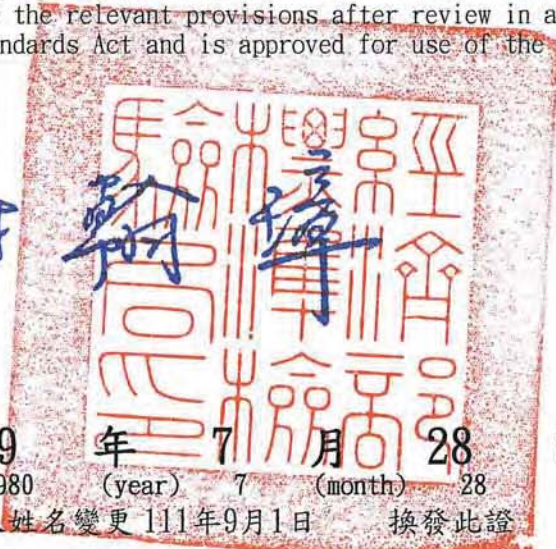 the relevant provisions after review in a
ndards Act and is approved for use of the
經濟部標準檢驗局印
翰璋
9 年 7 月 28
980 (year) 7 (month) 28
姓名變更 111年9月1日 換發此證